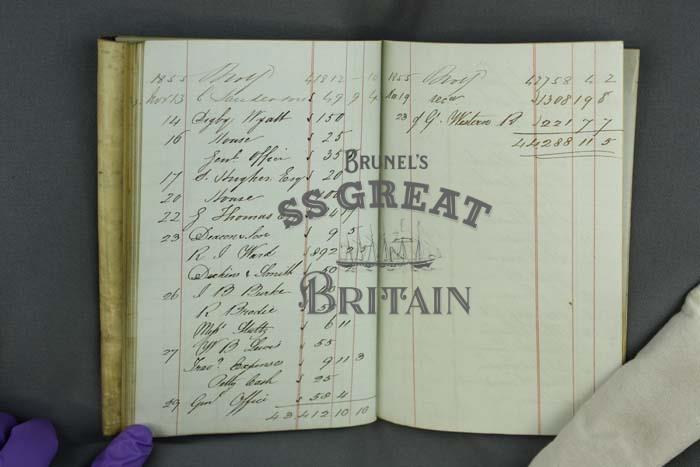 1855 41812 10
Nov 13 C Sanderson 49 9 4
14 Digby Wyatt 150
16 House 25
Genl Office 35
17 S. Hughes Esq 20
20 House
22 J Thomas
23 Deacon & Son 9 5
R J Ward 892 2 5
Dickins & Smith 50 2
26 J B Burke
R Brodie
6 11
27 W B 55
Travg Expenses 9 11 3
Petty Cash 25
29 Genl Office 58 4
43412 10 10
1855 42758 4 2
Nov 19 1308 19 8
23 Gt Western R 221 7 7
44288 11 5
BRUNEL'S
SS GREAT
BRITAIN